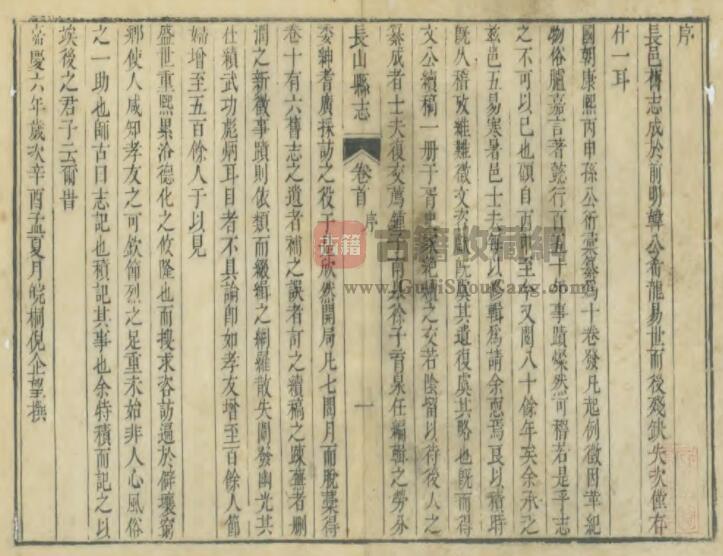 序
長邑舊志成於前明韓公希龍易世而後殘缺失次僅存
什一耳
國朝康熙丙申孫公衍纂為十卷發凡起例徵因革紀
物俗臚嘉言著懿行百五十年事蹟燦然可稽若是乎志
之不可以已也顧自丙申至今又閱八十餘年矣余承乏
茲邑五易寒暑邑士夫每以修輯為請余恧焉良以積時
既久稽攷維難徵文攷獻既虞其遺復虞其略也既而得
文公續稿一冊于胥吏家之文若陰留以待後人之
纂成者士夫復交薦鍾徐子胥杲任編輯之勞分
長山縣志
卷首
序
一
委紳耆廣採訪之役于是欣然開局凡七閱月而脫藁得
卷十有六舊志之遺者補之誤者訂之續稿之踈蕪者刪
潤之新徵事蹟則依類而綴緝之網羅散失闡發幽光其
仕績武功彪炳耳目者不具論即如孝友增至百餘人節
婦增至五百餘人于以見
盛世重熙累洽德化之攸隆也而搜求咨訪遍於僻壤窮
鄉使人咸知孝友之可欽節烈之足重未始非人心風俗
之一助也師古曰志記也積記其事也余特積而記之以
埃後之君子云爾昔
嘉慶六年歲次辛酉孟夏月皖桐倪企望撰
古籍
古籍收藏網
www.GujiShouCang.com